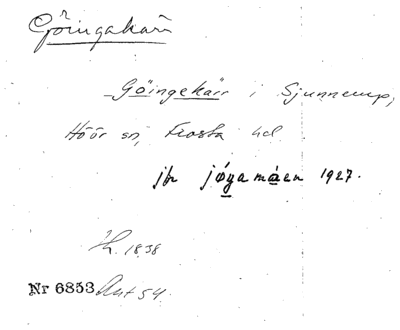 Göingakärr
Göingekärr i Sjunnerup,
Höör sn, Frosta hd
jfr jöga måen 1927.
H. 1838
Nr 6853 Ant 54.